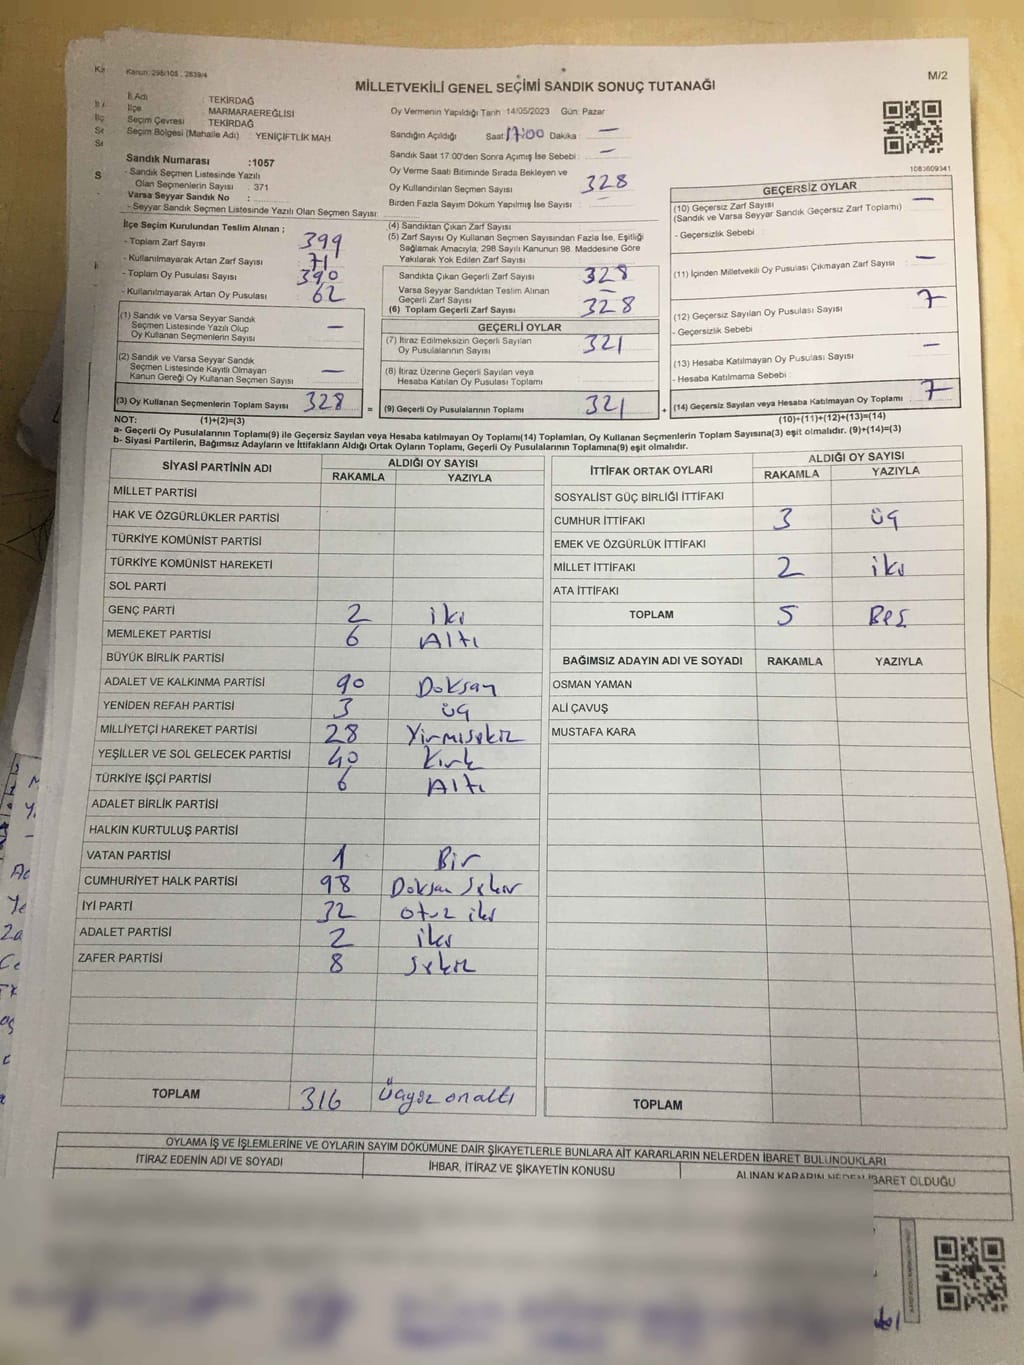 Kanun: 298/105 ; 2839/4
M/2
MİLLETVEKİLİ GENEL SEÇİMİ SANDIK SONUÇ TUTANAĞI
İl Adı : TEKİRDAĞ
İlçe : MARMARAEREĞLİSİ
Seçim Çevresi : TEKİRDAĞ
Seçim Bölgesi (Mahalle Adı) : YENİÇİFTLİK MAH.
Sandık Numarası :1057
- Sandık Seçmen Listesinde Yazılı
Olan Seçmenlerin Sayısı : 371
Varsa Seyyar Sandık No :
- Seyyar Sandık Seçmen Listesinde Yazılı Olan Seçmen Sayısı:
Oy Vermenin Yapıldığı Tarih 14/05/2023 Gün: Pazar
Sandığın Açıldığı Saat 17:00 Dakika : —
Sandık Saat 17:00'den Sonra Açımış İse Sebebi : —
Oy Verme Saati Bitiminde Sırada Bekleyen ve
Oy Kullandırılan Seçmen Sayısı 328
Birden Fazla Sayım Döküm Yapılmış İse Sayısı :
1083609341
İlçe Seçim Kurulundan Teslim Alınan ;
- Toplam Zarf Sayısı 399
- Kullanılmayarak Artan Zarf Sayısı : 71
- Toplam Oy Pusulası Sayısı 390
- Kullanılmayarak Artan Oy Pusulası : 62
(1) Sandık ve Varsa Seyyar Sandık
Seçmen Listesinde Yazılı Olup
Oy Kullanan Seçmenlerin Sayısı —
(2) Sandık ve Varsa Seyyar Sandık
Seçmen Listesinde Kayıtlı Olmayan
Kanun Gereği Oy Kullanan Seçmen Sayısı —
(3) Oy Kullanan Seçmenlerin Toplam Sayısı 328
(4) Sandıktan Çıkan Zarf Sayısı
(5) Zarf Sayısı Oy Kullanan Seçmen Sayısından Fazla İse, Eşitliği
Sağlamak Amacıyla, 298 Sayılı Kanunun 98. Maddesine Göre
Yakılarak Yok Edilen Zarf Sayısı
Sandıkta Çıkan Geçerli Zarf Sayısı 328
Varsa Seyyar Sandıktan Teslim Alınan
Geçerli Zarf Sayısı —
(6) Toplam Geçerli Zarf Sayısı : 328
GEÇERLİ OYLAR
(7) İtiraz Edilmeksizin Geçerli Sayılan
Oy Pusulalarının Sayısı : 321
(8) İtiraz Üzerine Geçerli Sayılan veya
Hesaba Katılan Oy Pusulası Toplamı :
= (9) Geçerli Oy Pusulalarının Toplamı 321 +
GEÇERSİZ OYLAR
(10) Geçersiz Zarf Sayısı —
(Sandık ve Varsa Seyyar Sandık Geçersiz Zarf Toplamı)
- Geçersizlik Sebebi
(11) İçinden Milletvekili Oy Pusulası Çıkmayan Zarf Sayısı —
(12) Geçersiz Sayılan Oy Pusulası Sayısı 7
- Geçersizlik Sebebi
(13) Hesaba Katılmayan Oy Pusulası Sayısı —
- Hesaba Katılmama Sebebi :
(14) Geçersiz Sayılan veya Hesaba Katılmayan Oy Toplamı : 7
NOT: (1)+(2)=(3) (10)+(11)+(12)+(13)=(14)
a- Geçerli Oy Pusulalarının Toplamı(9) ile Geçersiz Sayılan veya Hesaba katılmayan Oy Toplamı(14) Toplamları, Oy Kullanan Seçmenlerin Toplam Sayısına(3) eşit olmalıdır. (9)+(14)=(3)
b- Siyasi Partilerin, Bağımsız Adayların ve İttifakların Aldığı Ortak Oyların Toplamı, Geçerli Oy Pusulalarının Toplamına(9) eşit olmalıdır.
SİYASİ PARTİNİN ADI ALDIĞI OY SAYISI
RAKAMLA YAZIYLA
MİLLET PARTİSİ
HAK VE ÖZGÜRLÜKLER PARTİSİ
TÜRKİYE KOMÜNİST PARTİSİ
TÜRKİYE KOMÜNİST HAREKETİ
SOL PARTİ
GENÇ PARTİ 2 iki
MEMLEKET PARTİSİ 6 Altı
BÜYÜK BİRLİK PARTİSİ
ADALET VE KALKINMA PARTİSİ 90 Doksan
YENİDEN REFAH PARTİSİ 3 üç
MİLLİYETÇİ HAREKET PARTİSİ 28 Yirmisekiz
YEŞİLLER VE SOL GELECEK PARTİSİ 40 Kırk
TÜRKİYE İŞÇİ PARTİSİ 6 Altı
ADALET BİRLİK PARTİSİ
HALKIN KURTULUŞ PARTİSİ
VATAN PARTİSİ 1 Bir
CUMHURİYET HALK PARTİSİ 98 Doksan sekiz
İYİ PARTİ 32 otuz iki
ADALET PARTİSİ 2 iki
ZAFER PARTİSİ 8 sekiz
TOPLAM 316 üçyüz onaltı
İTTİFAK ORTAK OYLARI ALDIĞI OY SAYISI
RAKAMLA YAZIYLA
SOSYALİST GÜÇ BİRLİĞİ İTTİFAKI
CUMHUR İTTİFAKI 3 üç
EMEK VE ÖZGÜRLÜK İTTİFAKI
MİLLET İTTİFAKI 2 iki
ATA İTTİFAKI
TOPLAM 5 Beş
BAĞIMSIZ ADAYIN ADI VE SOYADI RAKAMLA YAZIYLA
OSMAN YAMAN
ALİ ÇAVUŞ
MUSTAFA KARA
TOPLAM
OYLAMA İŞ VE İŞLEMLERİNE VE OYLARIN SAYIM DÖKÜMÜNE DAİR ŞİKAYETLERLE BUNLARA AİT KARARLARIN NELERDEN İBARET BULUNDUKLARI
İTİRAZ EDENİN ADI VE SOYADI İHBAR, İTİRAZ VE ŞİKAYETİN KONUSU ALINAN KARARIN NEDEN İBARET OLDUĞU